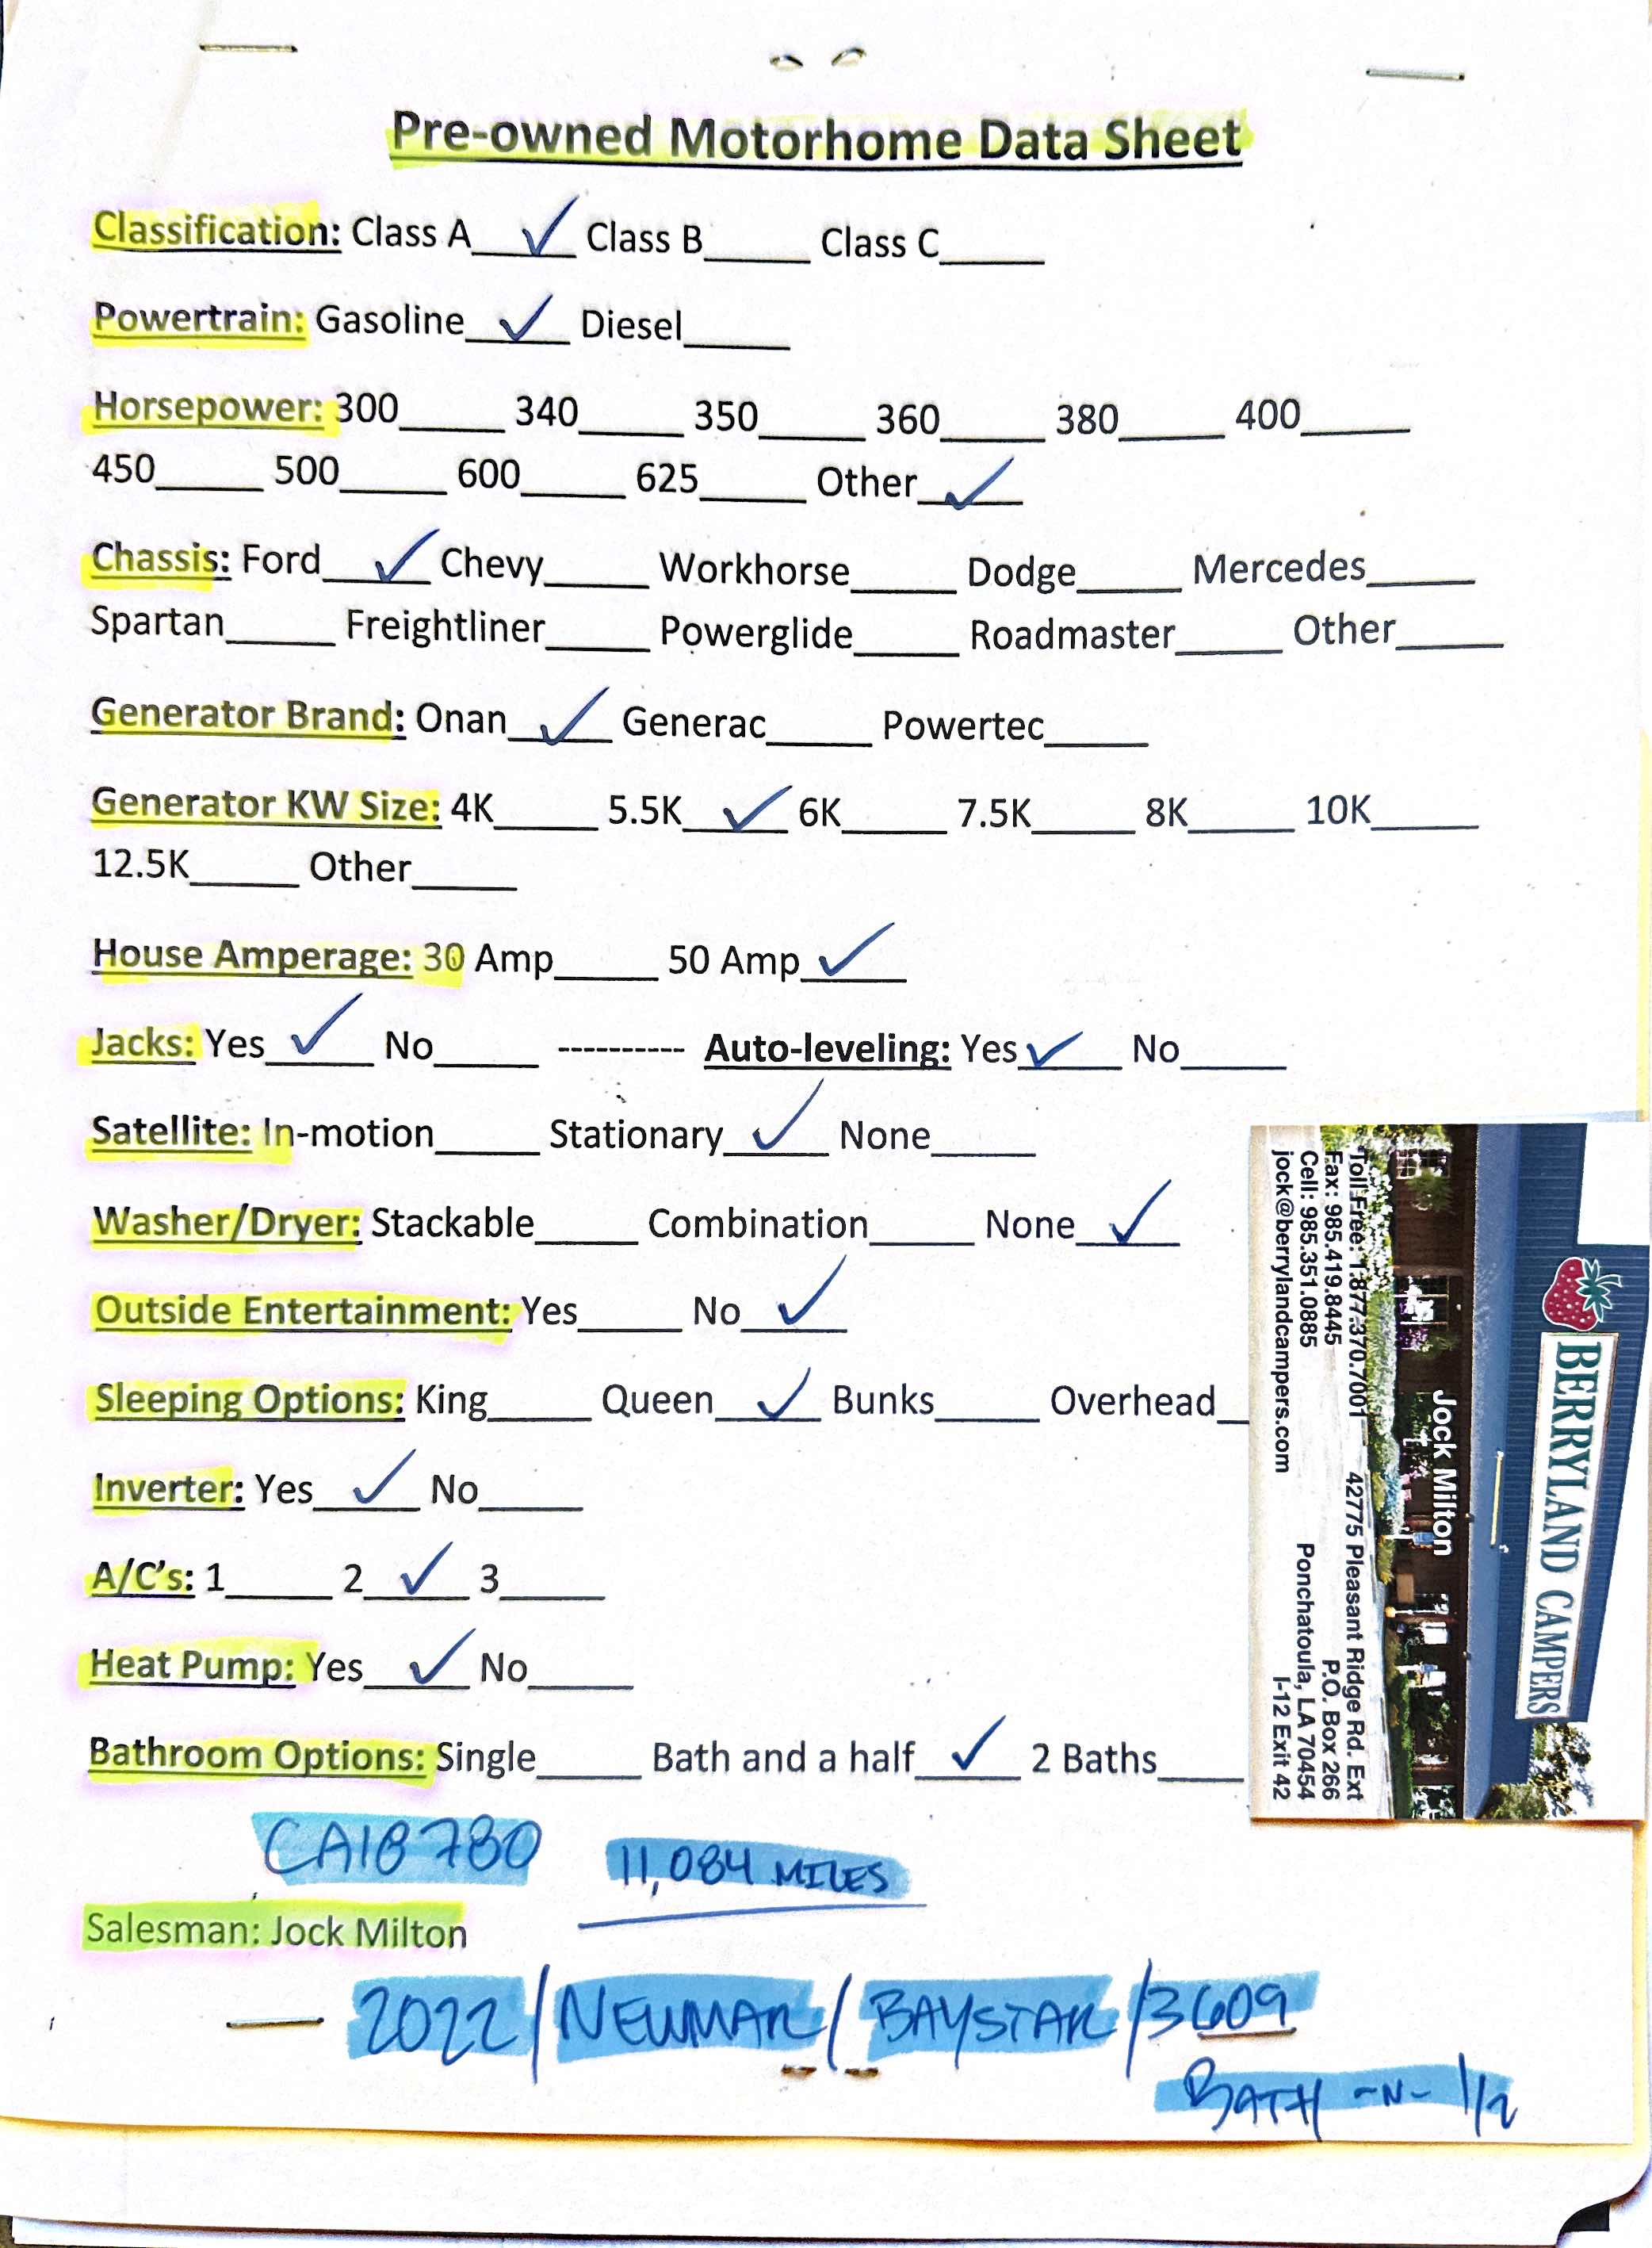 Pre-owned Motorhome Data Sheet
Classification: Class A ✓ Class B_____ Class C_____
Powertrain: Gasoline ✓ Diesel_____
Horsepower: 300_____ 340_____ 350_____ 360_____ 380_____ 400_____
450_____ 500_____ 600_____ 625_____ Other ✓
Chassis: Ford ✓ Chevy_____ Workhorse_____ Dodge_____ Mercedes_____
Spartan_____ Freightliner_____ Powerglide_____ Roadmaster_____ Other_____
Generator Brand: Onan ✓ Generac_____ Powertec_____
Generator KW Size: 4K_____ 5.5K ✓ 6K_____ 7.5K_____ 8K_____ 10K_____
12.5K_____ Other_____
House Amperage: 30 Amp_____ 50 Amp ✓
Jacks: Yes ✓ No_____ ---------- Auto-leveling: Yes ✓ No_____
Satellite: In-motion_____ Stationary ✓ None_____
Washer/Dryer: Stackable_____ Combination_____ None ✓
Outside Entertainment: Yes_____ No ✓
Sleeping Options: King_____ Queen ✓ Bunks_____ Overhead_
Inverter: Yes ✓ No_____
A/C's: 1_____ 2 ✓ 3_____
Heat Pump: Yes ✓ No_____
Bathroom Options: Single_____ Bath and a half ✓ 2 Baths____
BERRYLAND CAMPERS
Jock Milton
Toll Free: 1.877.370.7001 42775 Pleasant Ridge Rd. Ext
Fax: 985.419.8445 P.O. Box 266
Cell: 985.351.0885 Ponchatoula, LA 70454
jock@berrylandcampers.com I-12 Exit 42
CA18780 11,084 MILES
Salesman: Jock Milton
— 2022/NEWMAR/BAYSTAR/3609
BATH -N- 1/2